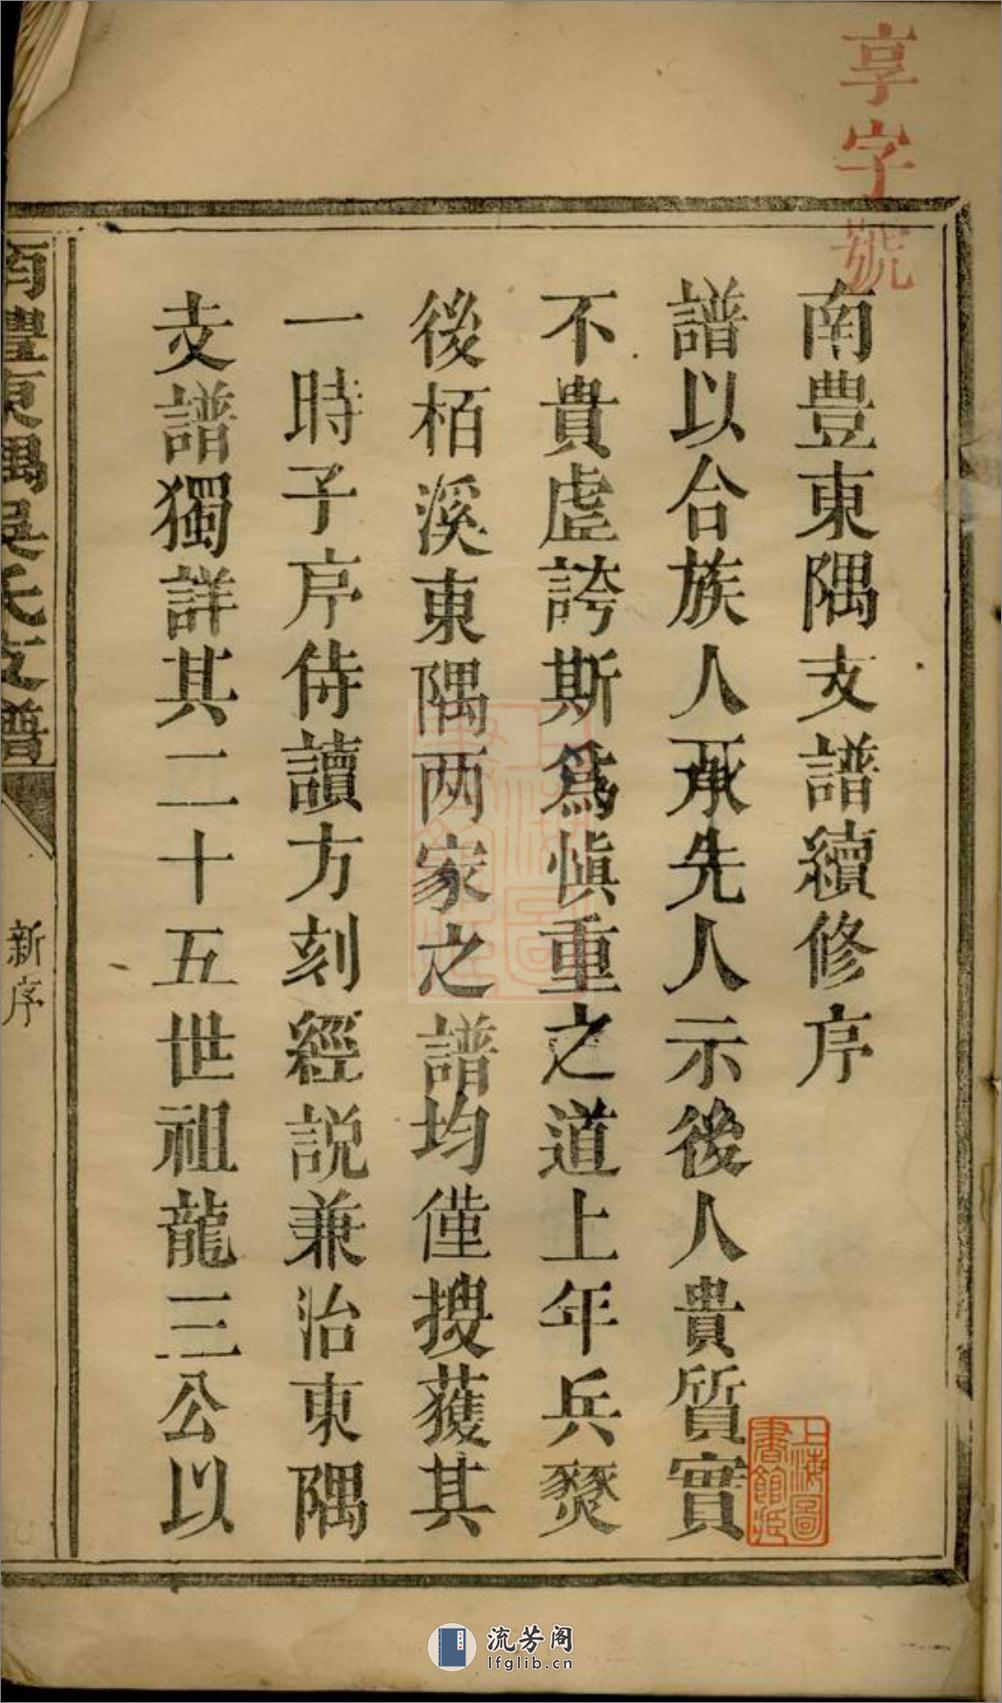 享字號
南豊東隅支譜續修序
譜以合族人承先人示後人貴質實
不貴虛誇斯爲慎重之道上年兵燹
後栢溪東隅两家之譜均僅搜獲其
一時子序侍讀方刻經説兼治東隅
支譜獨詳其二十五世祖龍三公以
南豐東隅吳氏支譜
新序
上海圖書館藏
上海圖書館藏
流芳阁
lfglib.cn